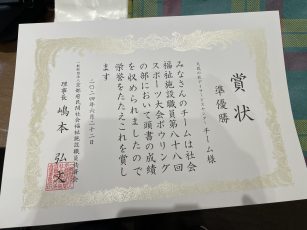 賞状
準優勝
チーム様
みなさんのチームは社会
福祉施設職員第八十八回
スポーツ大会ボウリング
の部において頭書の成績
を収められましたので
栄誉をたたえこれを賞し
ます
二〇二四年六月二十二日
京都府民間社会福祉施設職員共済会
理事長 嶋本 弘文